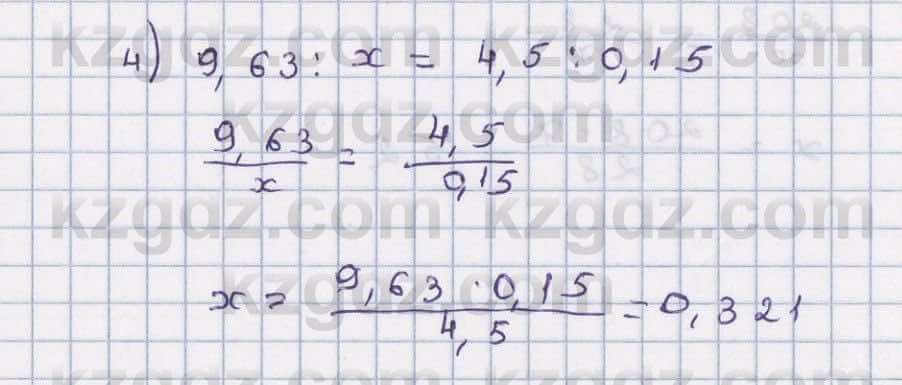 kzgdz.com kzgdz.com
4) 9,63 : x = 4,5 : 0,15
kzgdz.com
9,63/x = 4,5/0,15
kzgdz.com kzgdz.com
x = 9,63 · 0,15/4,5 = 0,321
kzgdz.com